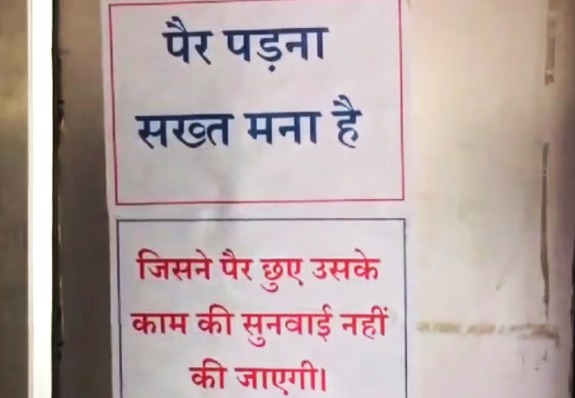 पैर पड़ना
सख्त मना है
जिसने पैर छुए उसके
काम की सुनवाई नहीं
की जाएगी।